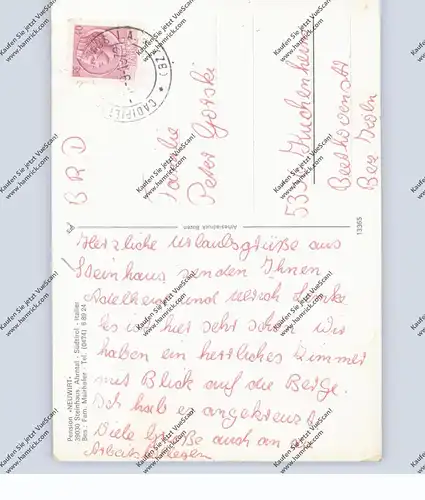 CADIPIETRA (BZ)
BRD
Familie
Peter Gorski
Kuchenheim
Beethovenstr.
Bez. Köln
Athesiadruck Bozen
13365
Pension »NEUWIRT«
39030 Steinhaus, Ahrntal - Südtirol - Italien
Bes.: Fam. Mairhofer - Tel. (0474)
Herzliche Urlaubsgrüße aus
Steinhaus senden Ihnen
Adelheid und Ulrich
Es ist hier sehr schön. Wir
haben ein herrliches Zimmer
mit Blick auf die Berge.
Ich hab es angekreuzt.
Viele Grüße auch an die
Arbeitskollegen
Kaufen Sie jetzt VueScan!
www.hamrick.com